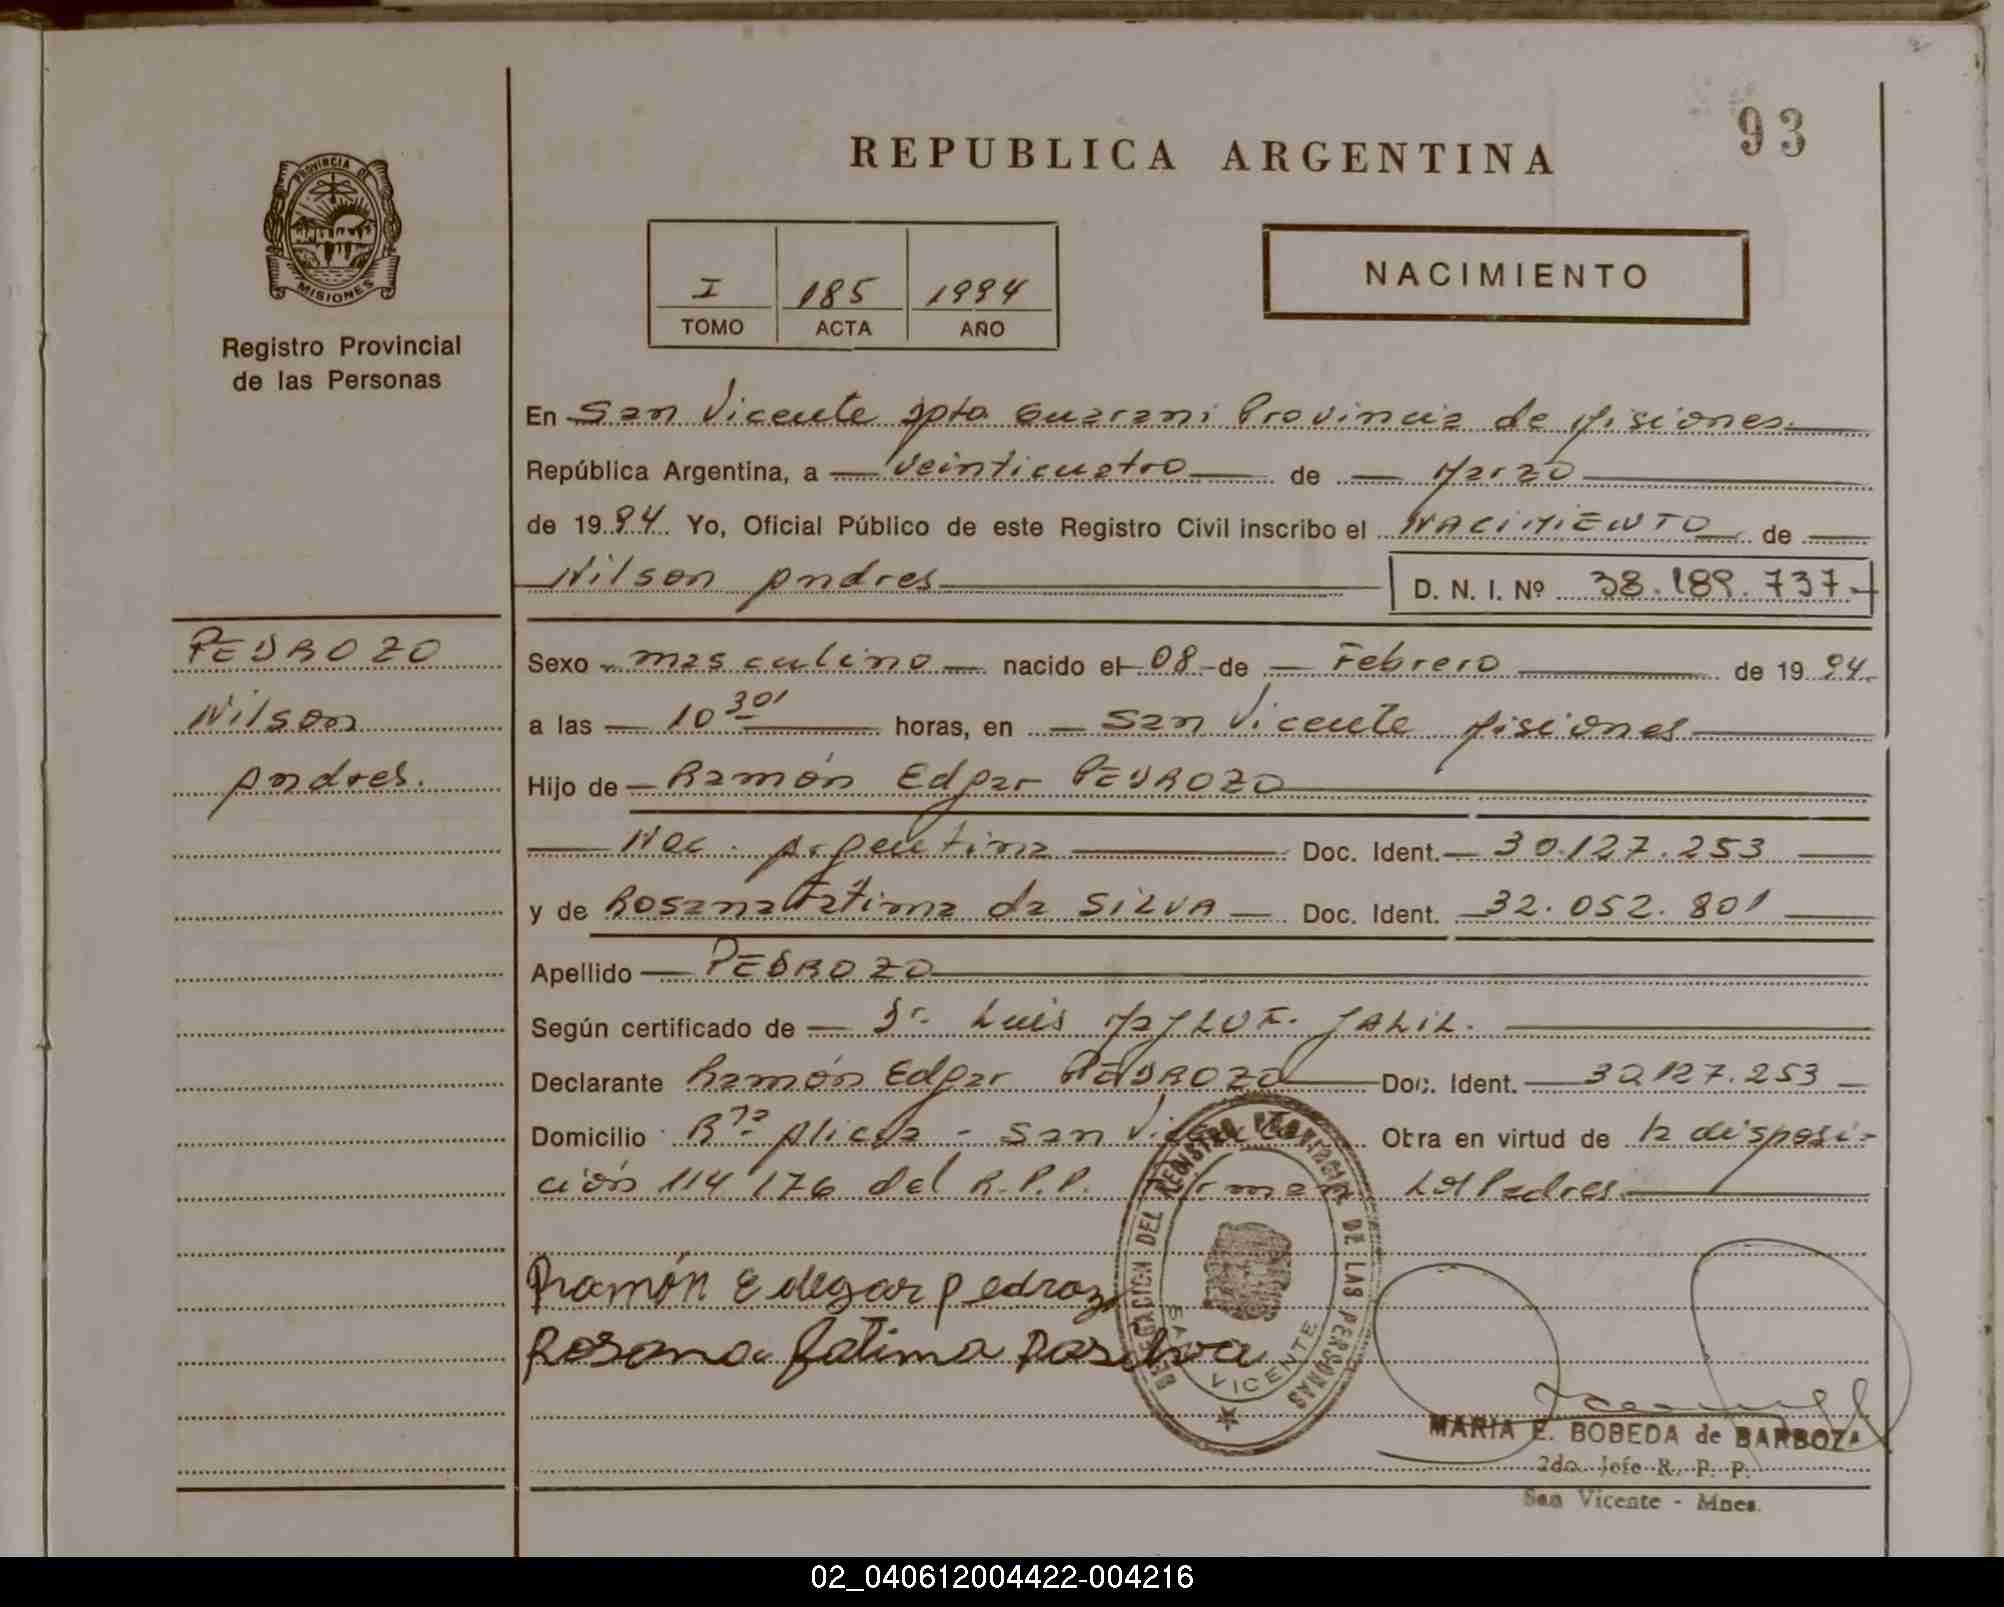 93
REPUBLICA ARGENTINA
PROVINCIA DE
MISIONES
Registro Provincial
de las Personas
I 185 1994
TOMO ACTA AÑO
NACIMIENTO
En San Vicente Dpto Guarani Provincia de Misiones.
República Argentina, a veinticuatro de Marzo
de 1994 Yo, Oficial Público de este Registro Civil inscribo el NACIMIENTO de
Nilson Andres D. N. I. Nº 38.189.737
PEDROZO
Nilson
Andres.
Sexo masculino nacido el 08 de Febrero de 1994
a las 10 30' horas, en San Vicente Misiones
Hijo de Ramón Edgar PEDROZO
Nac. Argentina Doc. Ident. 30.127.253
y de Rosana Fatima da SILVA Doc. Ident. 32.052.801
Apellido PEDROZO
Según certificado de Dr. Luis JALIL.
Declarante Ramón Edgar PEDROZO Doc. Ident. 30.127.253
Domicilio San Vicente Otra en virtud de la disposi-
ción 114/76 del R.P.P. Firman Los Padres
Ramón Edegar pedrozo
Rosana fatima Dasilva
DELEGACION DEL REGISTRO PROVINCIAL DE LAS PERSONAS
SAN VICENTE
MARIA E. BOBEDA de BARBOZA
2do. Jefe R. P. P.
San Vicente - Mnes.
02_040612004422-004216